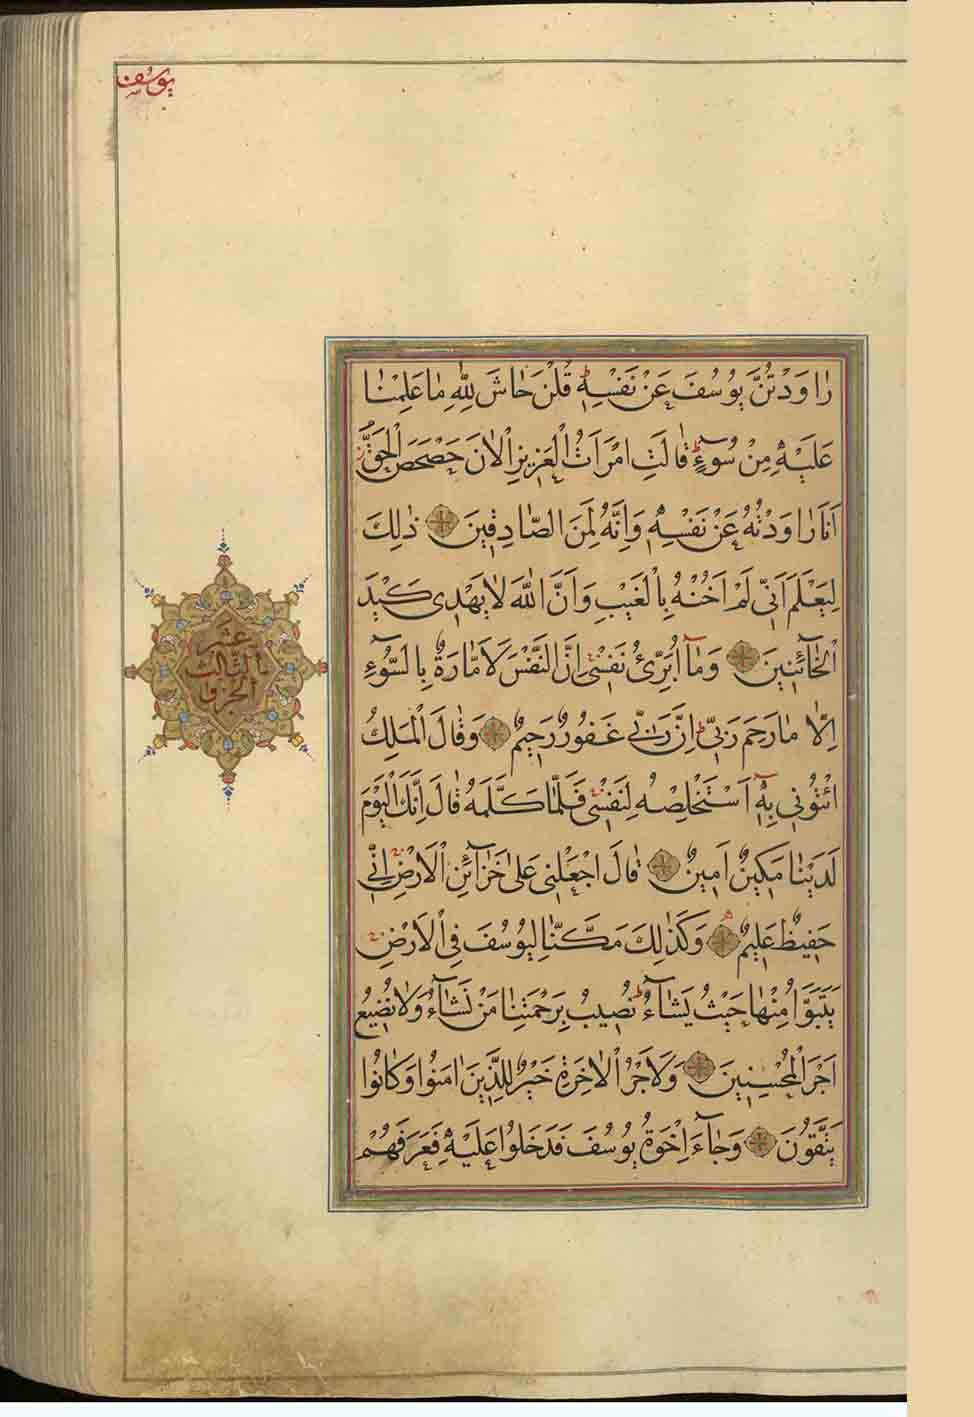 يوسف
رٰاوَدْتُنَّ يُوسُفَ عَنْ نَفْسِهِ قُلْنَ حَاشَ لِلّٰهِ مٰا عَلِمْنٰا
عَلَيْهِ مِنْ سُوٓءٍ قٰالَتِ امْرَاَتُ الْعَزِيزِ الْاٰنَ حَصْحَصَ الْحَقُّ
اَنَا رٰاوَدْتُهُ عَنْ نَفْسِهِ وَاِنَّهُ لَمِنَ الصّٰادِقِينَ ذٰلِكَ
لِيَعْلَمَ اَنِّى لَمْ اَخُنْهُ بِالْغَيْبِ وَاَنَّ اللّٰهَ لٰا يَهْدِى كَيْدَ
الْخٰٓائِنِينَ وَمٰٓا اُبَرِّئُ نَفْسِى اِنَّ النَّفْسَ لَاَمّٰارَةٌ بِالسُّوٓءِ
اِلّٰا مٰا رَحِمَ رَبِّى اِنَّ رَبِّى غَفُورٌ رَحِيمٌ وَقٰالَ الْمَلِكُ
ائْتُونِى بِهِٓ اَسْتَخْلِصْهُ لِنَفْسِى فَلَمّٰا كَلَّمَهُ قٰالَ اِنَّكَ الْيَوْمَ
لَدَيْنٰا مَكِينٌ اَمِينٌ قٰالَ اجْعَلْنِى عَلىٰ خَزٰٓائِنِ الْاَرْضِ اِنِّى
حَفِيظٌ عَلِيمٌ وَكَذٰلِكَ مَكَّنّٰا لِيُوسُفَ فِى الْاَرْضِ
يَتَبَوَّاُ مِنْهٰا حَيْثُ يَشٰٓاءُ نُصِيبُ بِرَحْمَتِنٰا مَنْ نَشٰٓاءُ وَلٰا نُضِيعُ
اَجْرَ الْمُحْسِنِينَ وَلَاَجْرُ الْاٰخِرَةِ خَيْرٌ لِلَّذِينَ اٰمَنُوا وَكٰانُوا
يَتَّقُونَ وَجٰٓاءَ اِخْوَةُ يُوسُفَ فَدَخَلُوا عَلَيْهِ فَعَرَفَهُمْ
عشر
الثالث
الجزو